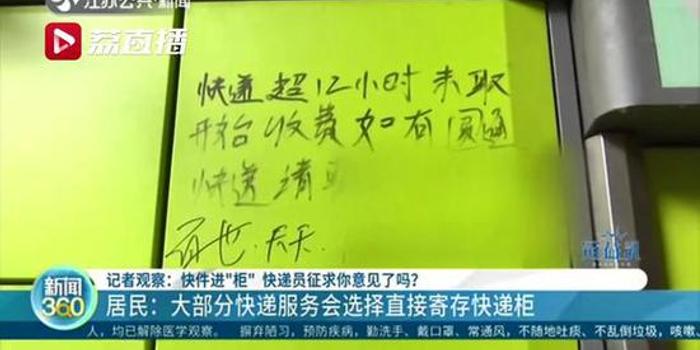 江苏公共·新闻
荔直播
快递超12小时未取
开始收费如有圆通
快递请
百世.天天.
荔直播
新闻
360
记者观察：快件进"柜" 快递员征求你意见了吗？
居民：大部分快递服务会选择直接寄存快递柜
人，均已解除医学观察。 摒弃陋习，预防疾病，勤洗手、戴口罩、常通风，不随地吐痰、不乱倒垃圾，咳嗽、